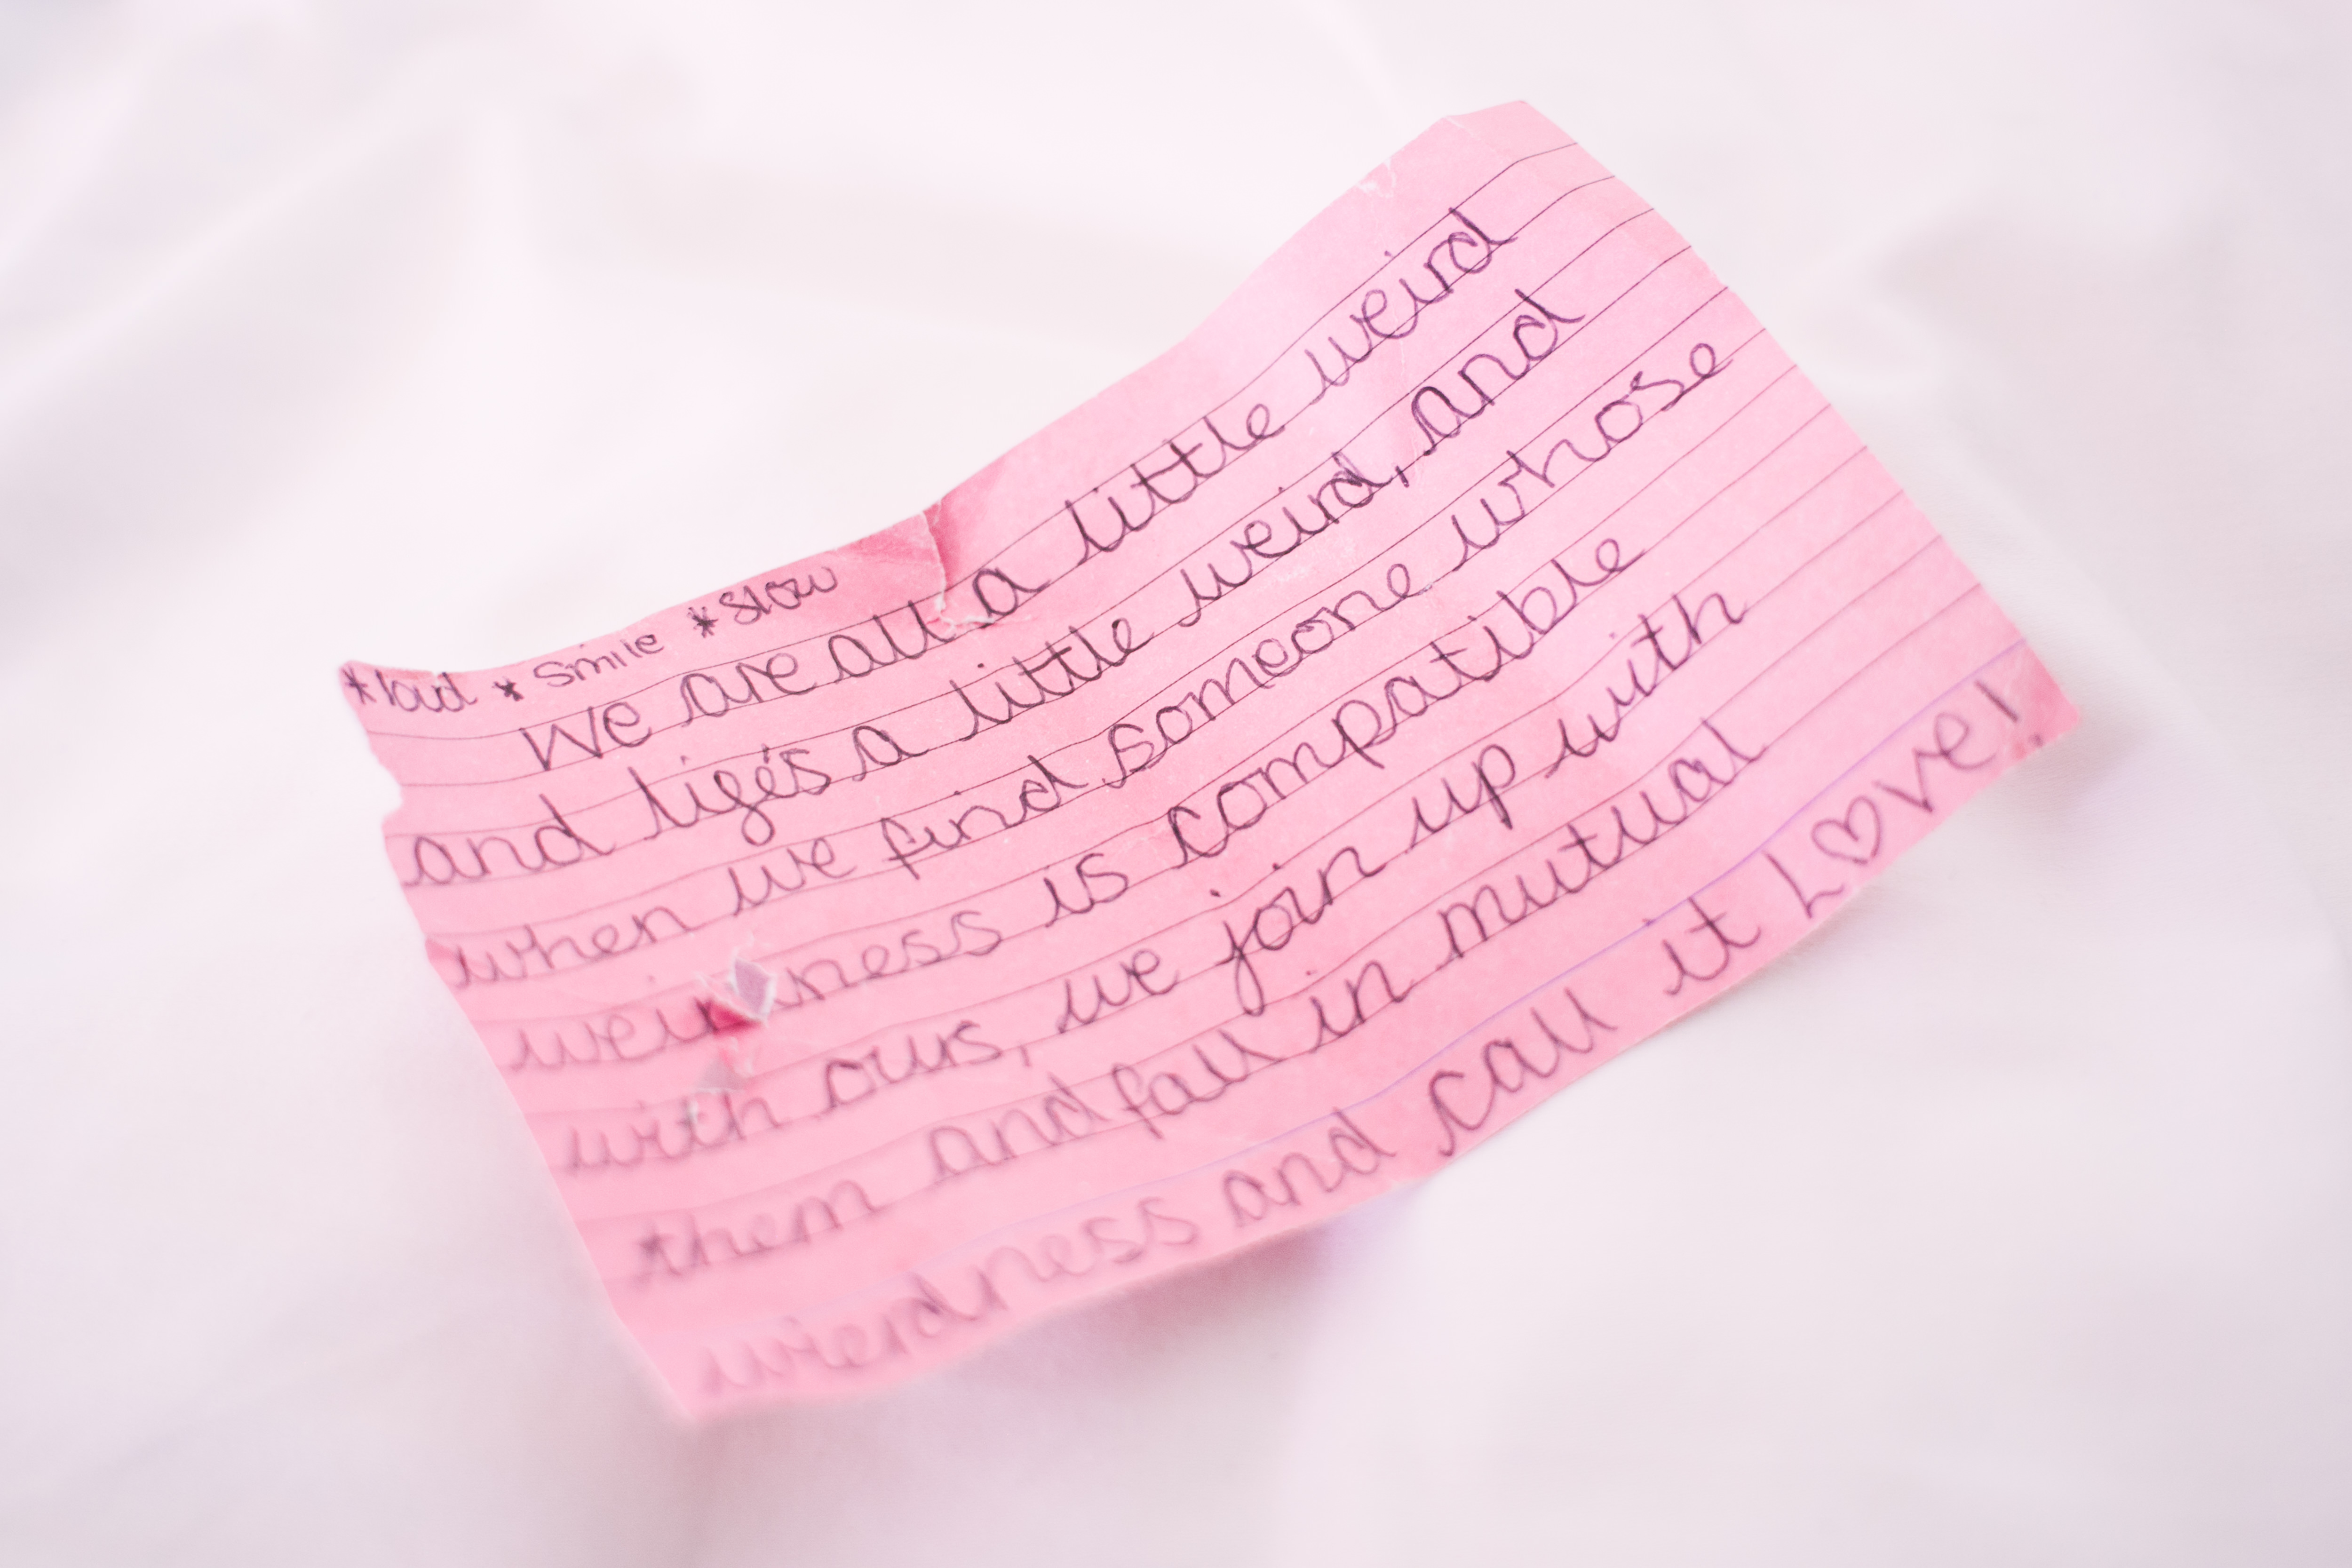 *loud *smile *slow
We are all a little weird
and life's a little weird, and
when we find someone whose
is compatible
with ours, we join up with
them and fall in mutual
wierdness and call it L♡ve!